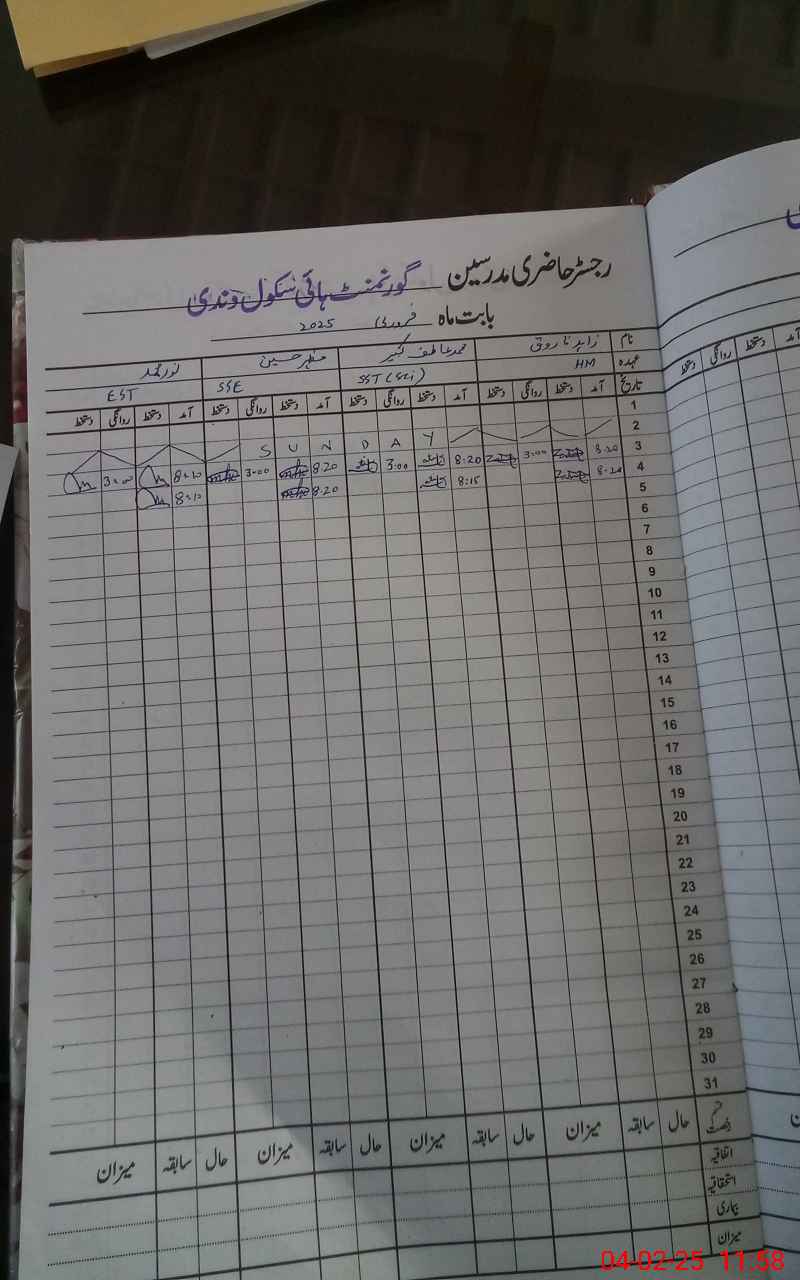 رجسٹر حاضری مدرسین گورنمنٹ ہائی سکول وندی
بابت ماہ فروری 2025
نام زاہد فاروق محمد عاطف کبیر مظہر حسین نور محمد
عہدہ HM SST (Sci) SSE EST
تاریخ آمد دستخط روانگی دستخط آمد دستخط روانگی دستخط آمد دستخط روانگی دستخط آمد دستخط روانگی دستخط
1
2 SUNDAY
3 8:20 3:00 8:20 3:00 8:20 3:00 8:20 3:00
4 8:20 8:15 8:20 8:20
5
6
7
8
9
10
11
12
13
14
15
16
17
18
19
20
21
22
23
24
25
26
27
28
29
30
31
حال سابقہ میزان حال سابقہ میزان حال سابقہ میزان حال سابقہ میزان
اتفاقیہ
استحقاقیہ
بیماری
میزان
04-02-25 11:58